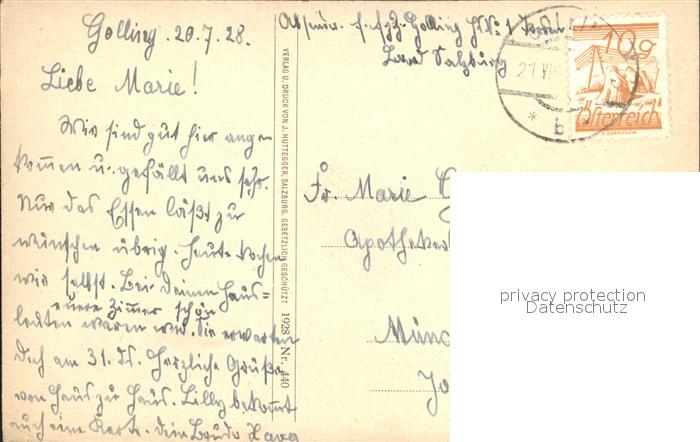 Golling. 20.7.28.
Liebe Marie!
Wir sind gut hier ange=
kommen u. gefällt uns sehr.
Nur das Essen läßt zu
wünschen übrig. Heute kochen
wir selbst. Bei Deinen Haus=
eure Zimmer schön
leuten waren wir. Sie erwarten
Dich am 31. ds. Herzliche Grüße
von Haus zu Haus. Lilly bekommt
auch eine Karte. Dein Bruder
VERLAG U. DRUCK VON J. HUTTEGGER, SALZBURG. GESETZLICH GESCHÜTZT 1928 Nr. 440
Golling № 1
Land Salzburg
21.VII
* b
10g
Österreich
Fr. Marie
Apotheker
Münc
privacy protection
Datenschutz